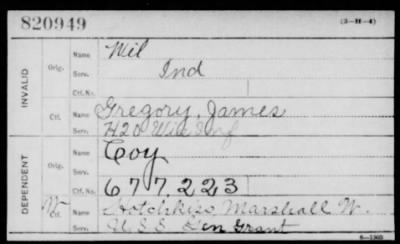 820949 (3-H-4)
INVALID
Orig. Name Wil
Serv. Ind
Ctf. No.
Ctf. Name Gregory, James
Serv. H 20 Wis Inf
DEPENDENT
Orig. Name Coy
Serv.
Ctf. No. 677,223
W Ctf. Name Hotchkiss, Marshall W.
Serv. U.S.S. Gen Grant